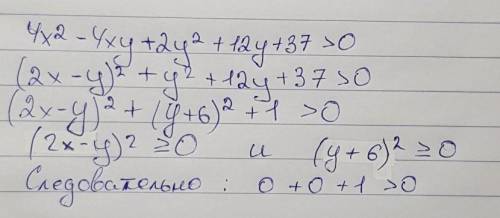 4x² - 4xy + 2y² + 12y + 37 > 0
(2x - y)² + y² + 12y + 37 > 0
(2x - y)² + (y + 6)² + 1 > 0
(2x - y)² ≥ 0 и (y + 6)² ≥ 0
Следовательно : 0 + 0 + 1 > 0